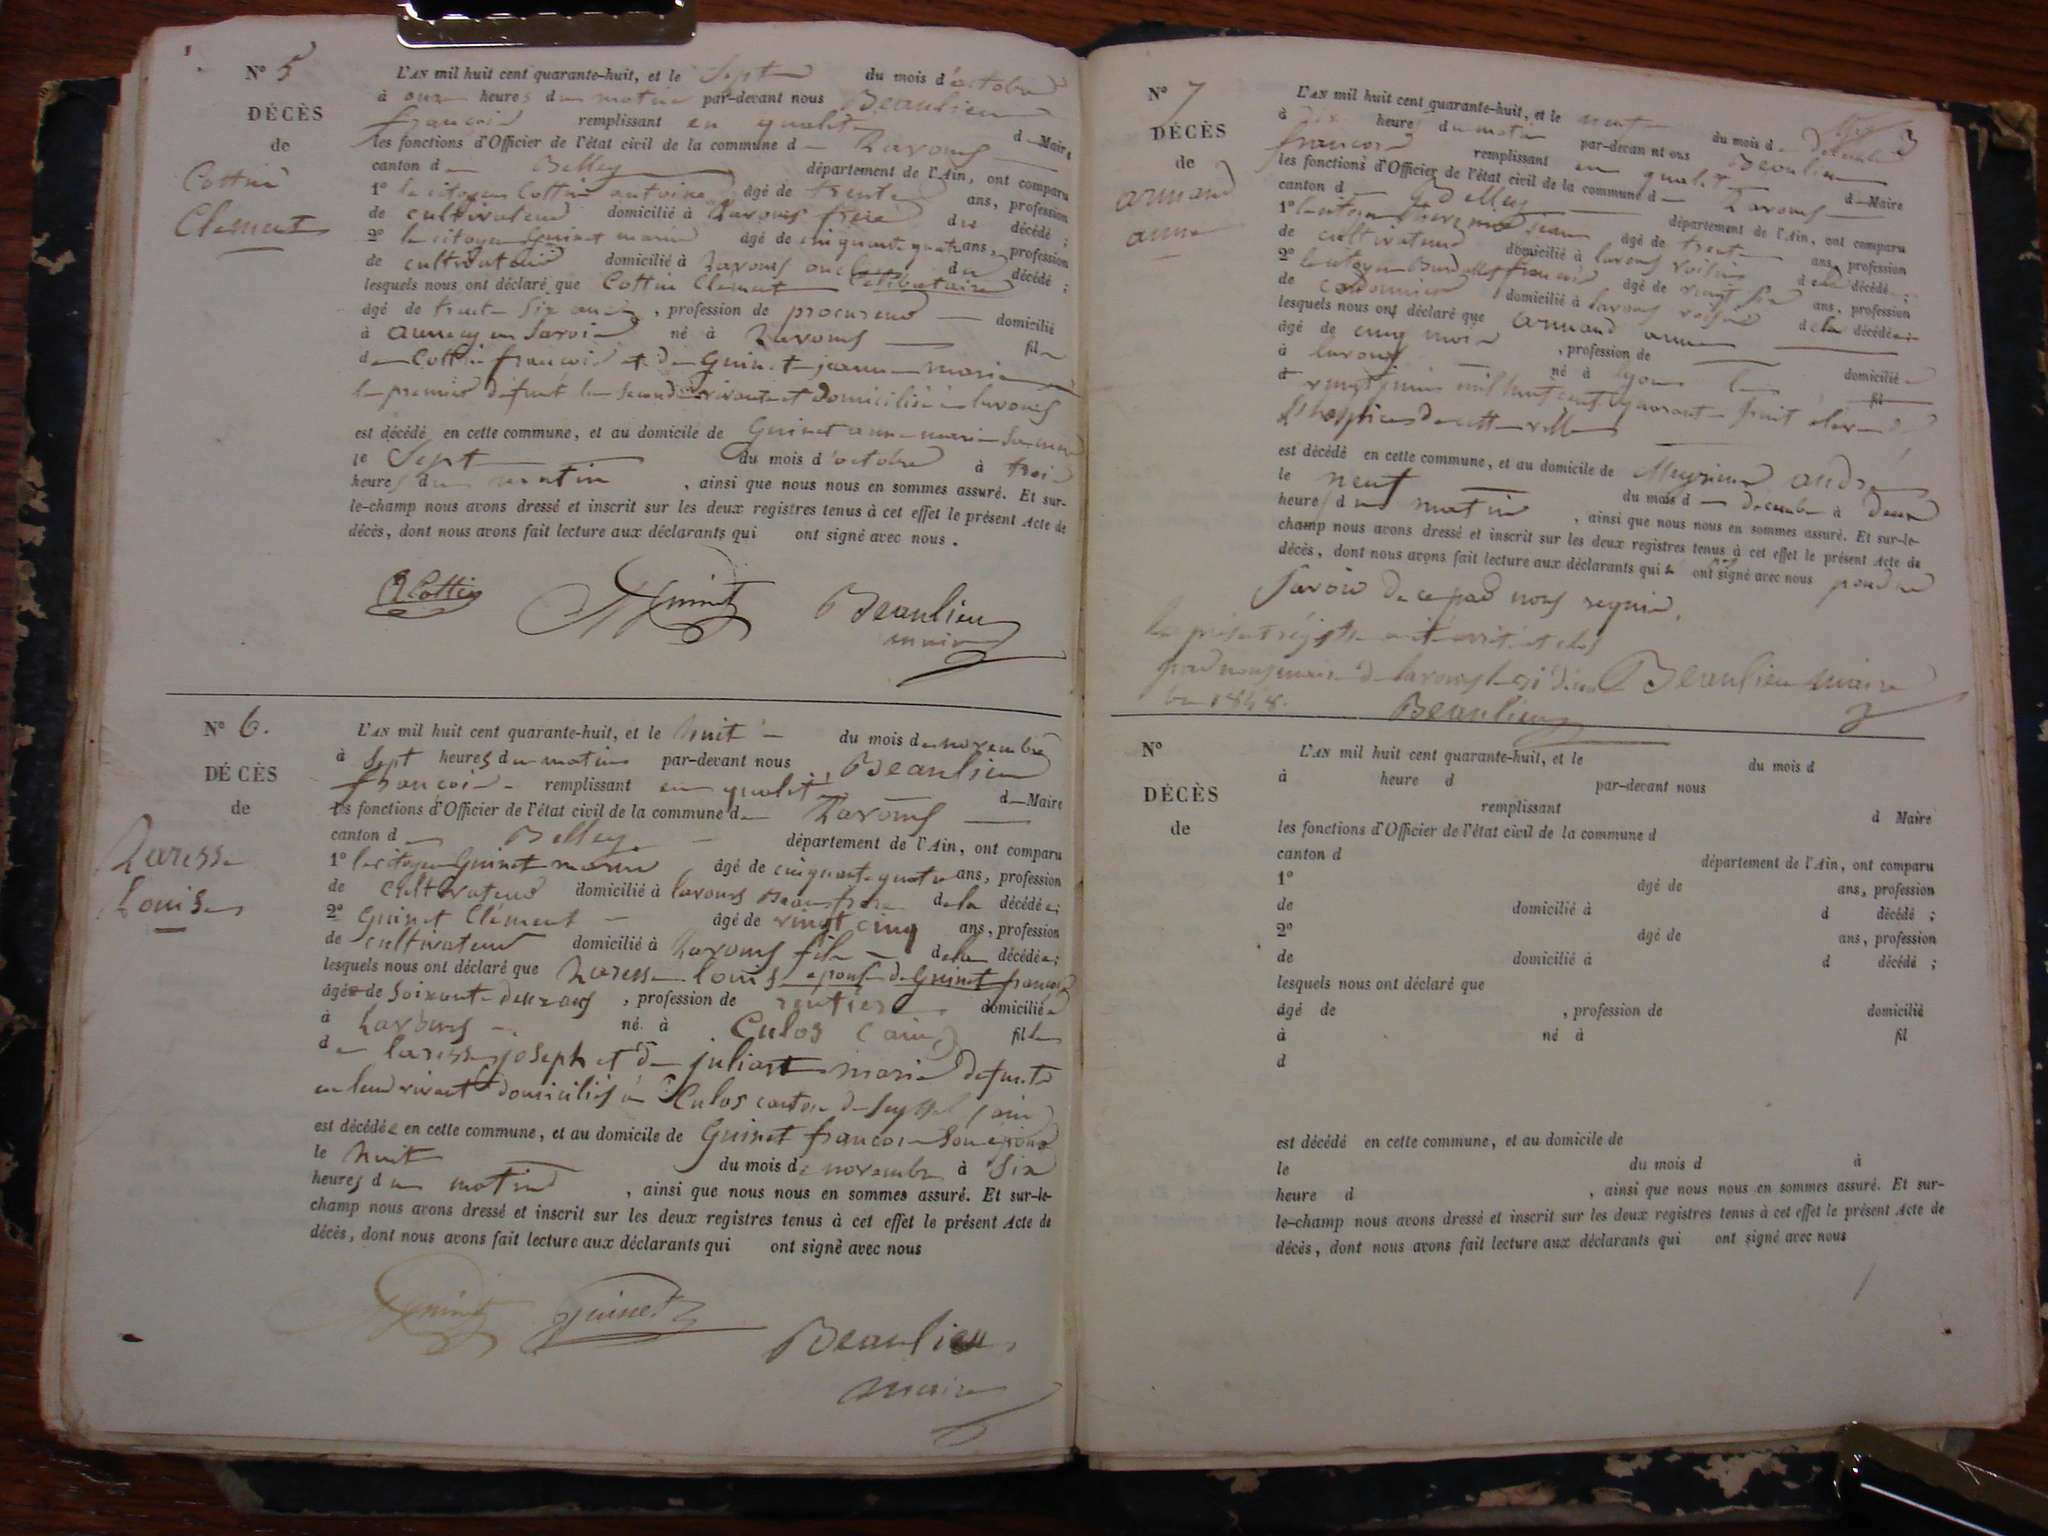 N° 5
DÉCÈS
de
Cottin
Clément
L'AN mil huit cent quarante-huit, et le Sept du mois d'octobre
à onze heures du matin par-devant nous Beaulieu
françois remplissant en qualité de Maire
les fonctions d'Officier de l'état civil de la commune de Lavours
canton de Belley département de l'Ain, ont comparu
1° le citoyen Cottin antoine âgé de trente ans, profession
de cultivateur domicilié à Lavours frère du décédé ;
2° le citoyen Guinet marin âgé de cinquante quatre ans, profession
de cultivateur domicilié à Lavours oncle du décédé ;
lesquels nous ont déclaré que Cottin Clément Celibataire
âgé de trente six ans, profession de procureur domicilié
à annecy en Savoie né à Lavours fils
de Cottin françois et de Guinet jeanne marie
le premier défunt la seconde vivante et domiciliée à lavours
est décédé en cette commune, et au domicile de Guinet anne marie Sa mère
le Sept du mois d'octobre à trois
heures du matin, ainsi que nous nous en sommes assuré. Et sur-
le-champ nous avons dressé et inscrit sur les deux registres tenus à cet effet le présent Acte de
décès, dont nous avons fait lecture aux déclarants qui ont signé avec nous.
Cottin Guinet Beaulieu
maire
N° 6.
DÉCÈS
de
Laresse
Louise
L'AN mil huit cent quarante-huit, et le huit du mois de novembre
à Sept heures du matin par-devant nous Beaulieu
françois remplissant en qualité de Maire
les fonctions d'Officier de l'état civil de la commune de Lavours
canton de Belley département de l'Ain, ont comparu
1° le citoyen Guinet marin âgé de cinquante quatre ans, profession
de cultivateur domicilié à lavours Beaufrère de la décédée ;
2° Guinet Clément âgé de vingt cinq ans, profession
de cultivateur domicilié à Lavours fils de la décédée ;
lesquels nous ont déclaré que Laresse louise epouse de Guinet françois
âgée de Soixante deux ans, profession de rentière domiciliée
à Lavours née à Culos (ain) fille
de laresse joseph et de juliart marie defunts
en leur vivant domiciliés à Culos canton de Seyssel (ain)
est décédée en cette commune, et au domicile de Guinet francois Son époux
le huit du mois de novembre à Six
heures du matin, ainsi que nous nous en sommes assuré. Et sur-le-
champ nous avons dressé et inscrit sur les deux registres tenus à cet effet le présent Acte de
décès, dont nous avons fait lecture aux déclarants qui ont signé avec nous
Guinet Guinet Beaulieu
maire
3
N° 7
DÉCÈS
de
armand
anne
L'AN mil huit cent quarante-huit, et le neuf du mois de Décembre
à dix heures du matin par-devant nous Beaulieu
francois remplissant en qualité de Maire
les fonctions d'Officier de l'état civil de la commune de Lavours
canton de Belley département de l'Ain, ont comparu
1° le citoyen jean âgé de trente ans, profession
de cultivateur domicilié à lavours voisin de la décédée ;
2° le citoyen francois âgé de vingt six ans, profession
de cordonnier domicilié à lavours voisin de la décédée
lesquels nous ont déclaré que armand anne
âgé de cinq mois, profession de domiciliée
à lavours né à lyon le fil
vingt juin mil huit cent quarante huit élève de
l'hospice de cette ville
est décédé en cette commune, et au domicile de andré
le neuf du mois de décembre à deux
heures du matin, ainsi que nous nous en sommes assuré. Et sur-le-
champ nous avons dressé et inscrit sur les deux registres tenus à cet effet le présent Acte de
décès, dont nous avons fait lecture aux déclarants qui n'ont signé avec nous pour ne
Savoir de ce par nous requis.
le présent régistre a été arrêté et clos
par nous maire de lavours le 31 Beaulieu maire
1848. Beaulieu
N°
DÉCÈS
de
L'AN mil huit cent quarante-huit, et le du mois d
à heure d par-devant nous
remplissant d Maire
les fonctions d'Officier de l'état civil de la commune d
canton d département de l'Ain, ont comparu
1° âgé de ans, profession
de domicilié à d décédé ;
2° âgé de ans, profession
de domicilié à d décédé ;
lesquels nous ont déclaré que
âgé de , profession de domicilié
à né à fil
d
est décédé en cette commune, et au domicile de
le du mois d à
heure d , ainsi que nous nous en sommes assuré. Et sur-
le-champ nous avons dressé et inscrit sur les deux registres tenus à cet effet le présent Acte de
décès, dont nous avons fait lecture aux déclarants qui ont signé avec nous